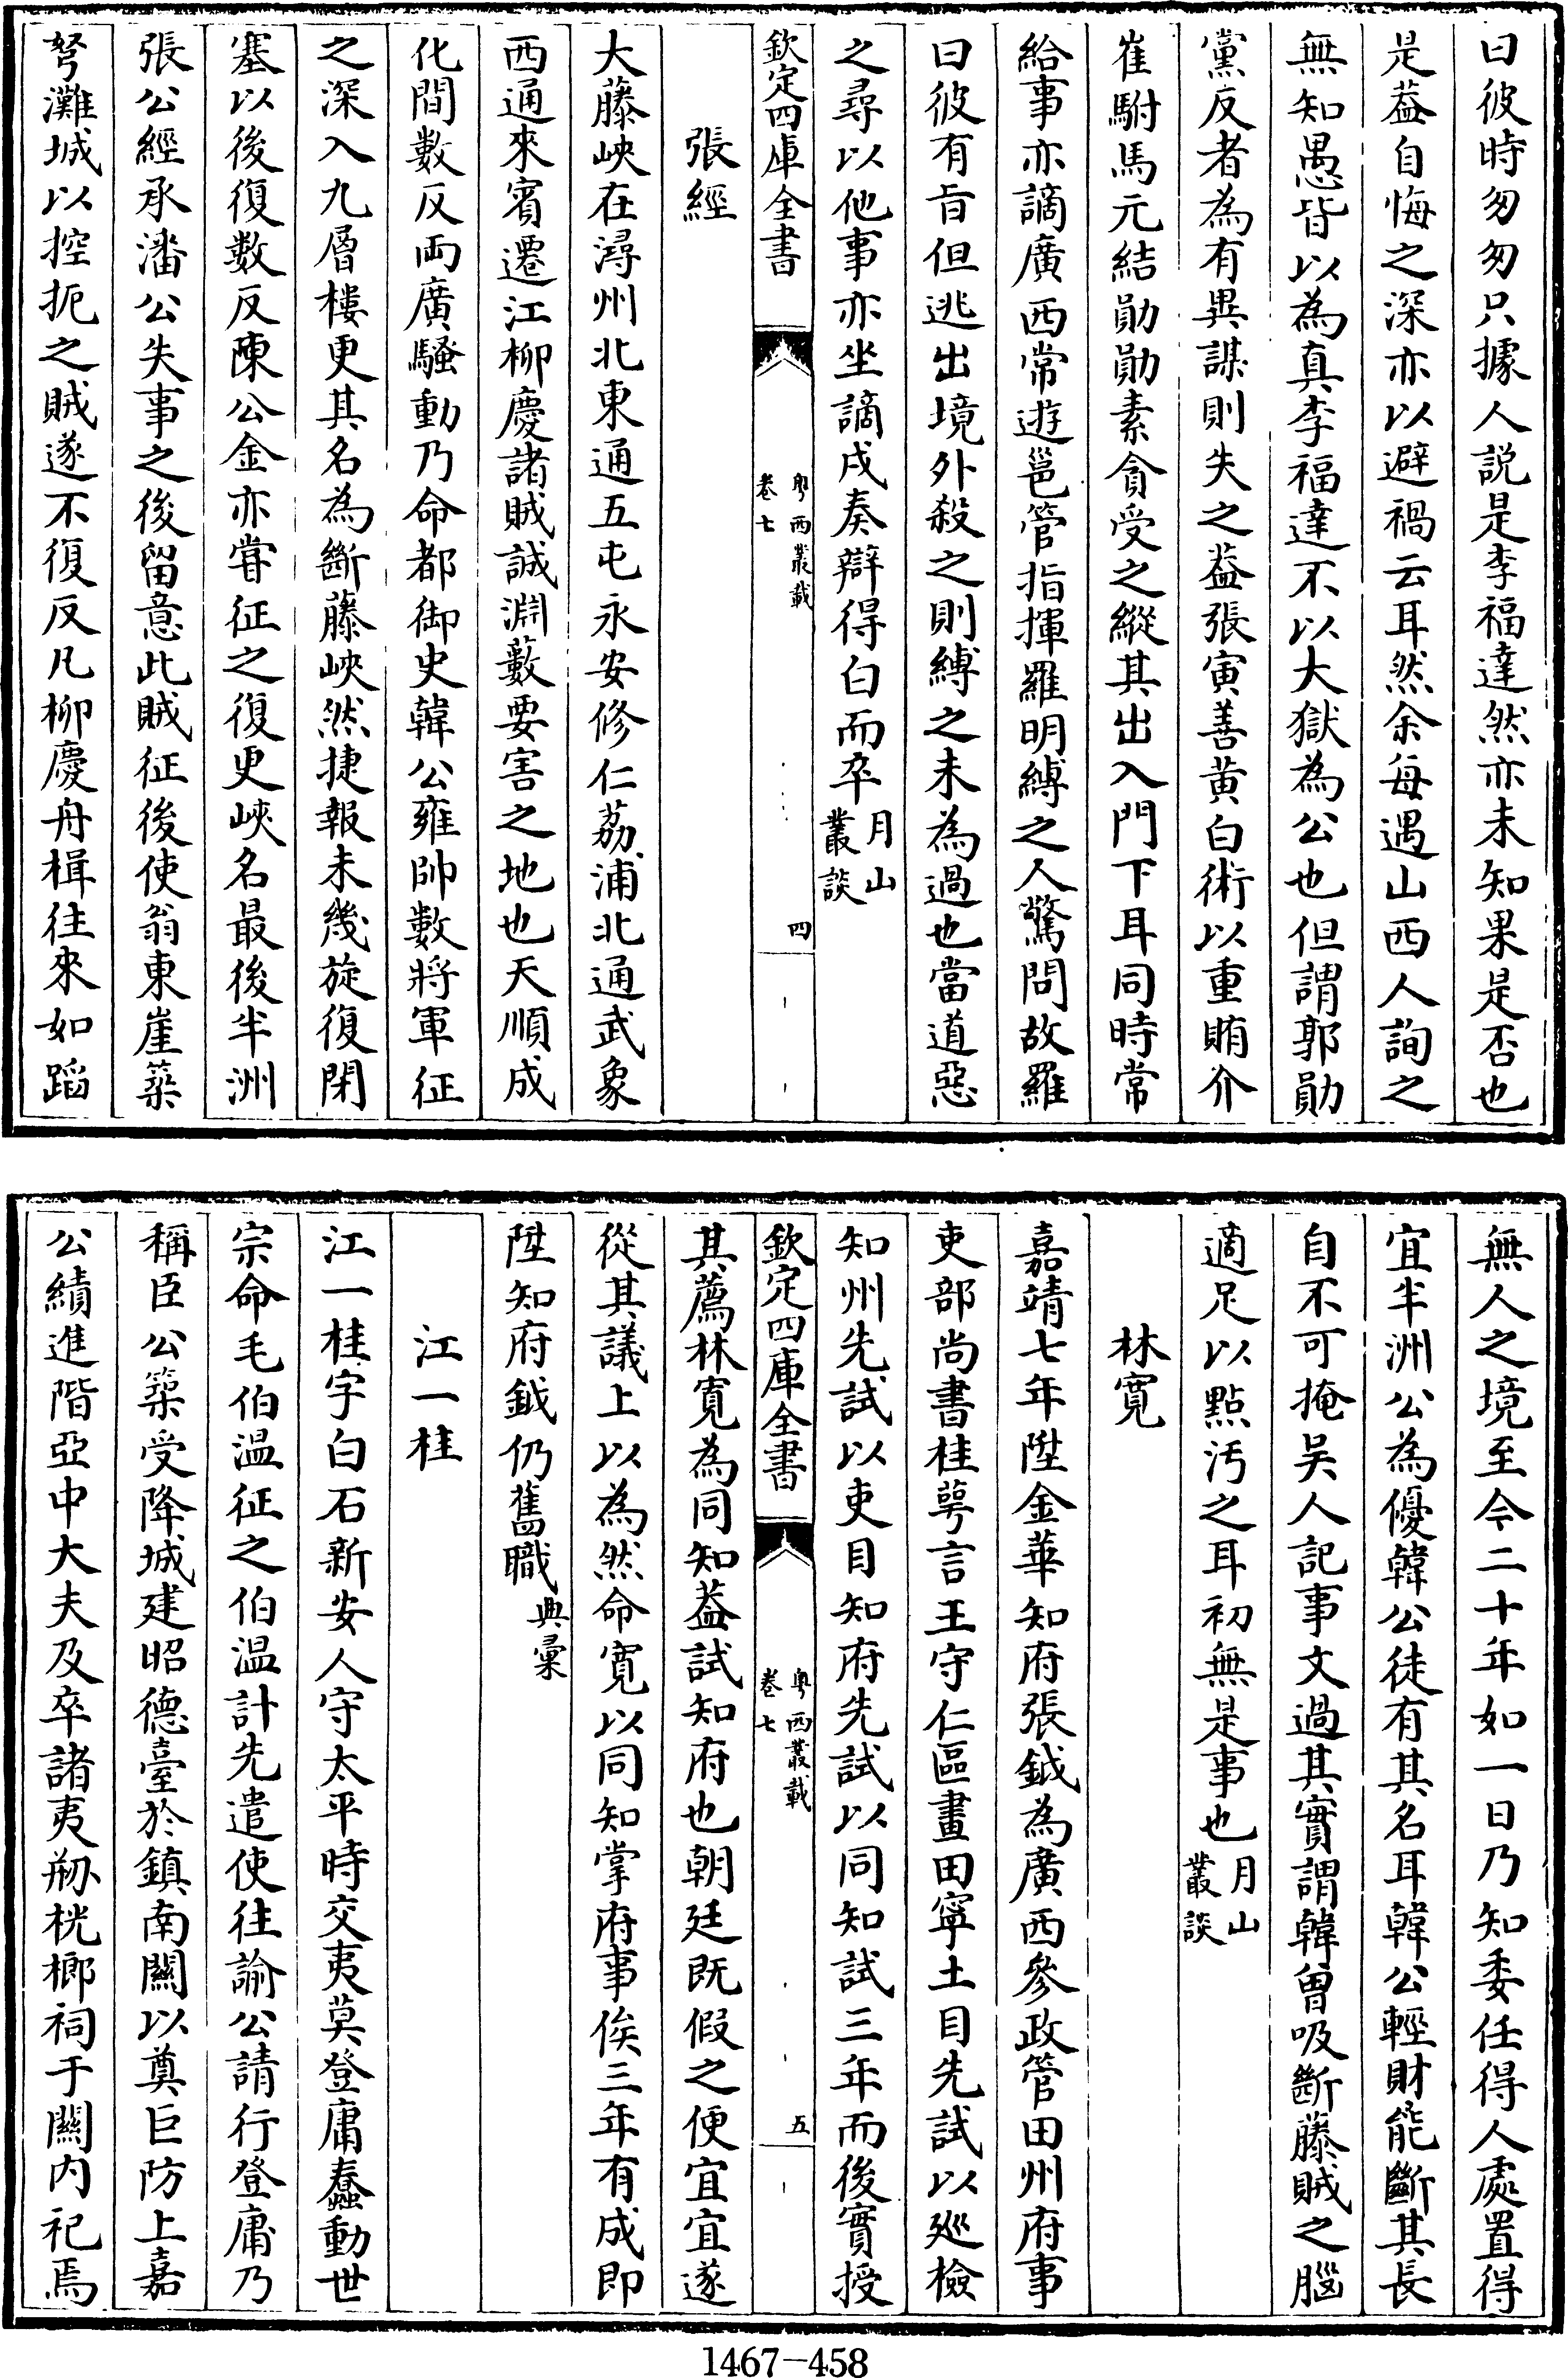 曰彼時匆匆只據人説是李福達然亦未知果是否也
是葢自悔之深亦以避禍云耳然余每遇山西人詢之
無知愚皆以為真李福達不以大獄為公也但謂郭勛
黨反者為有異謀則失之葢張寅善黄白術以重賄介
崔駙馬元結勛勛素貪受之縱其出入門下耳同時常
給事亦謫廣西常遊邕管指揮羅明縛之人驚問故羅
曰彼有旨但逃出境外殺之則縛之未為過也當道惡
之尋以他事亦坐謫戍奏辯得白而卒月山叢談
欽定四庫全書
粤西叢載
卷七
四
張經
大藤峽在潯州北東通五屯永安修仁荔浦北通武象
西通來賓遷江柳慶諸賊誠淵藪要害之地也天順成
化間數反両廣騷動乃命都御史韓公雍帥數將軍征
之深入九層樓更其名為斷藤峽然捷報未幾旋復閉
塞以後復數反陳公金亦甞征之復更峽名最後半洲
張公經承潘公失事之後留意此賊征後使翁東崖築
弩灘城以控扼之賊遂不復反凡柳慶舟楫往來如蹈
無人之境至今二十年如一日乃知委任得人處置得
宜半洲公為優韓公徒有其名耳韓公輕財能斷其長
自不可掩吴人記事文過其實謂韓曾吸斷藤賊之腦
適足以點汚之耳初無是事也月山叢談
林寛
嘉靖七年陞金華知府張鉞為廣西參政管田州府事
吏部尚書桂萼言王守仁區畫田寧土目先試以廵檢
知州先試以吏目知府先試以同知試三年而後實授
欽定四庫全書
粤西叢載
卷七
五
其薦林寛為同知葢試知府也朝廷既假之便宜宜遂
從其議上以為然命寛以同知掌府事俟三年有成即
陞知府鉞仍舊職典彚
江一桂
江一桂字白石新安人守太平時交夷莫登庸蠢動世
宗命毛伯温征之伯温計先遣使往諭公請行登庸乃
稱臣公築受降城建昭德臺於鎮南關以奠巨防上嘉
公績進階亞中大夫及卒諸夷刱桄榔祠于關内祀焉
1467-458